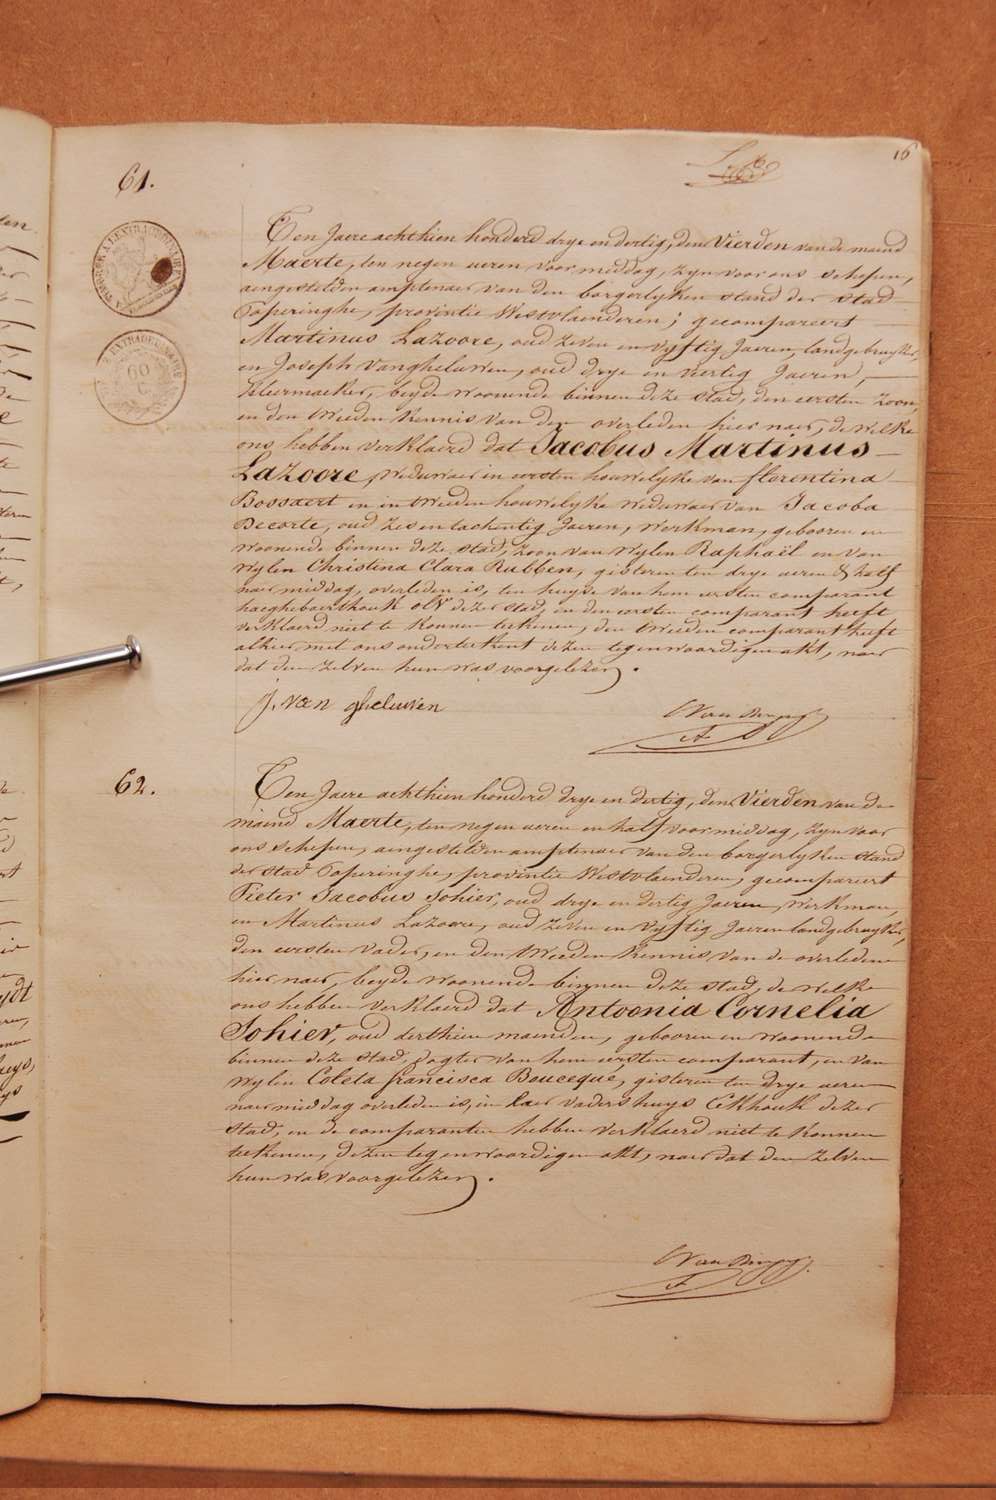 16
61.
TIMBRE A L'EXTRAORDINAIRE
60
C
Ten Jaere achthien honderd drye en dertig, den Vierden van de maend
Maerte, ten negen ueren voormiddag, zyn voor ons schepen,
aengestelden amptenaer van den borgerlyken stand der stad
Poperinghe, provintie Westvlaenderen; gecompareert
Martinus Lazoore, oud zeven en vyftig Jaeren, landgebruyker,
en Joseph Vangheluwen, oud drye en viertig Jaeren,
kleermaeker, beyde woonende binnen deze stad, den eersten zoon,
en den tweeden kennis van den overleden hier naer, de welke
ons hebben verklaerd dat Jacobus Martinus
Lazoore, weduwaer in eersten houwelyke van florentina
Bossaert en in tweeden houwelyke weduwaer van Jacoba
Decorte, oud zes en tachentig Jaeren, werkman, gebooren en
woonende binnen deze stad, zoon van wylen Raphaël en van
wylen Christina Clara Rubben, gisteren ten drye ueren & half
naermiddag, overleden is, ten huyze van hem eersten comparant
haeghebaerthoek olv dezer stad, en den eersten comparant heeft
verklaerd niet te konnen teekenen, den tweeden comparant heeft
alhier met ons onderteekent dezen tegenwoordigen akt, naer
dat den zelven hun was voorgelezen.
J. van gheluwen
62.
Ten Jaere achthien honderd drye en dertig, den Vierden van de
maend Maerte, ten negen ueren en half voormiddag, zyn voor
ons schepen, aengestelden amptenaer van den borgerlyken stand
der stad Poperinghe, provintie Westvlaenderen, gecompareert
Pieter Jacobus Sohier, oud drye en dertig Jaeren, werkman,
en Martinus Lazoore, oud zeven en vyftig Jaeren landgebruyker,
den eersten vader, en den tweeden kennis van de overledene
hier naer, beyde woonende binnen deze stad, de welke
ons hebben verklaerd dat Antoonia Cornelia
Sohier, oud derthien maenden, gebooren en woonende
binnen deze stad, dogter van hem eersten comparant, en van
wylen Coleta francisca Bouceque, gisteren ten drye ueren
naermiddag overleden is, in haer vaders huys Eekhoek dezer
stad, en de comparanten hebben verklaerd niet te konnen
teekenen, dezen tegenwoordigen akt, naer dat den zelven
hun was voorgelezen.